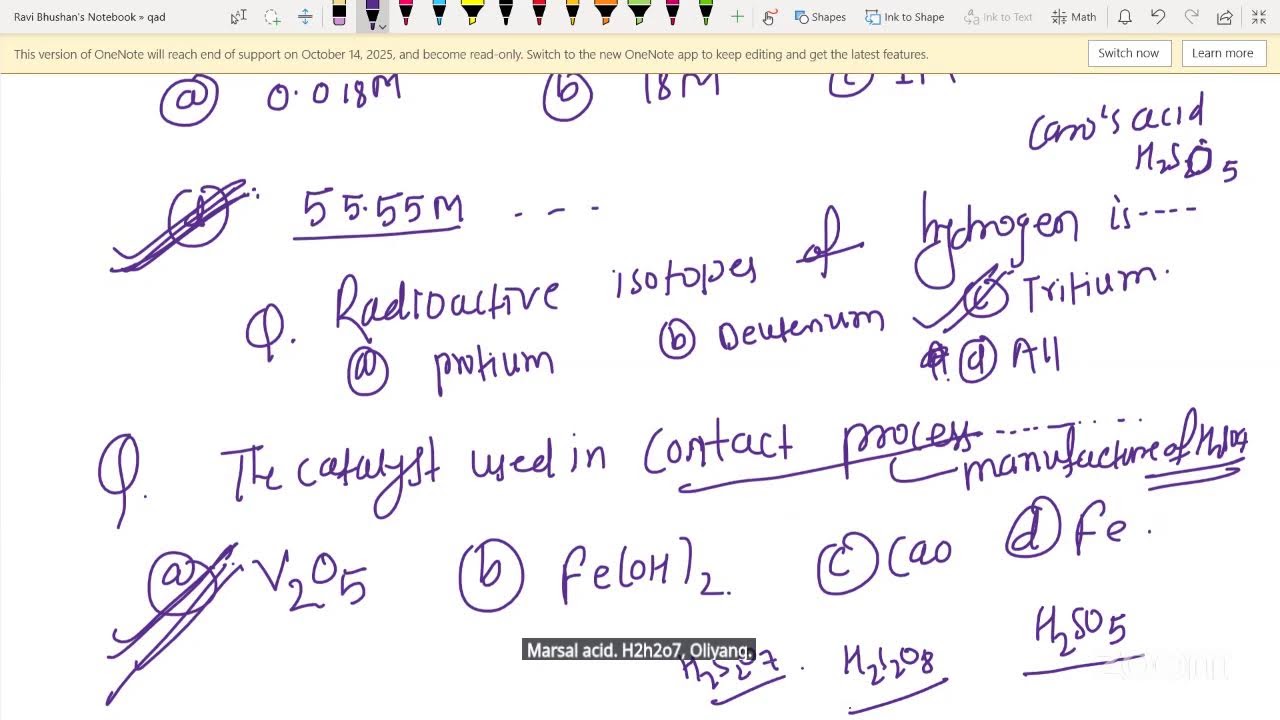 Ravi Bhushan's Notebook » qad
Shapes Ink to Shape Ink to Text Math
This version of OneNote will reach end of support on October 14, 2025, and become read-only. Switch to the new OneNote app to keep editing and get the latest features. Switch now Learn more
(a) 0.018M (b) 18M (c) 1M
Caro's acid
H₂SO₅
(d) 55.55M ...
Q. Radioactive isotopes of hydrogen is----
(a) protium (b) Deuterium (c) Tritium.
(d) All
Q. The catalyst used in Contact process..........
manufacture of H₂SO₄
(a) V₂O₅ (b) Fe(OH)₂. (c) CaO (d) Fe.
H₂SO₅
Marsal acid. H2h2o7, Oliyang.
H₂S₂O₇. H₂S₂O₈
zoom